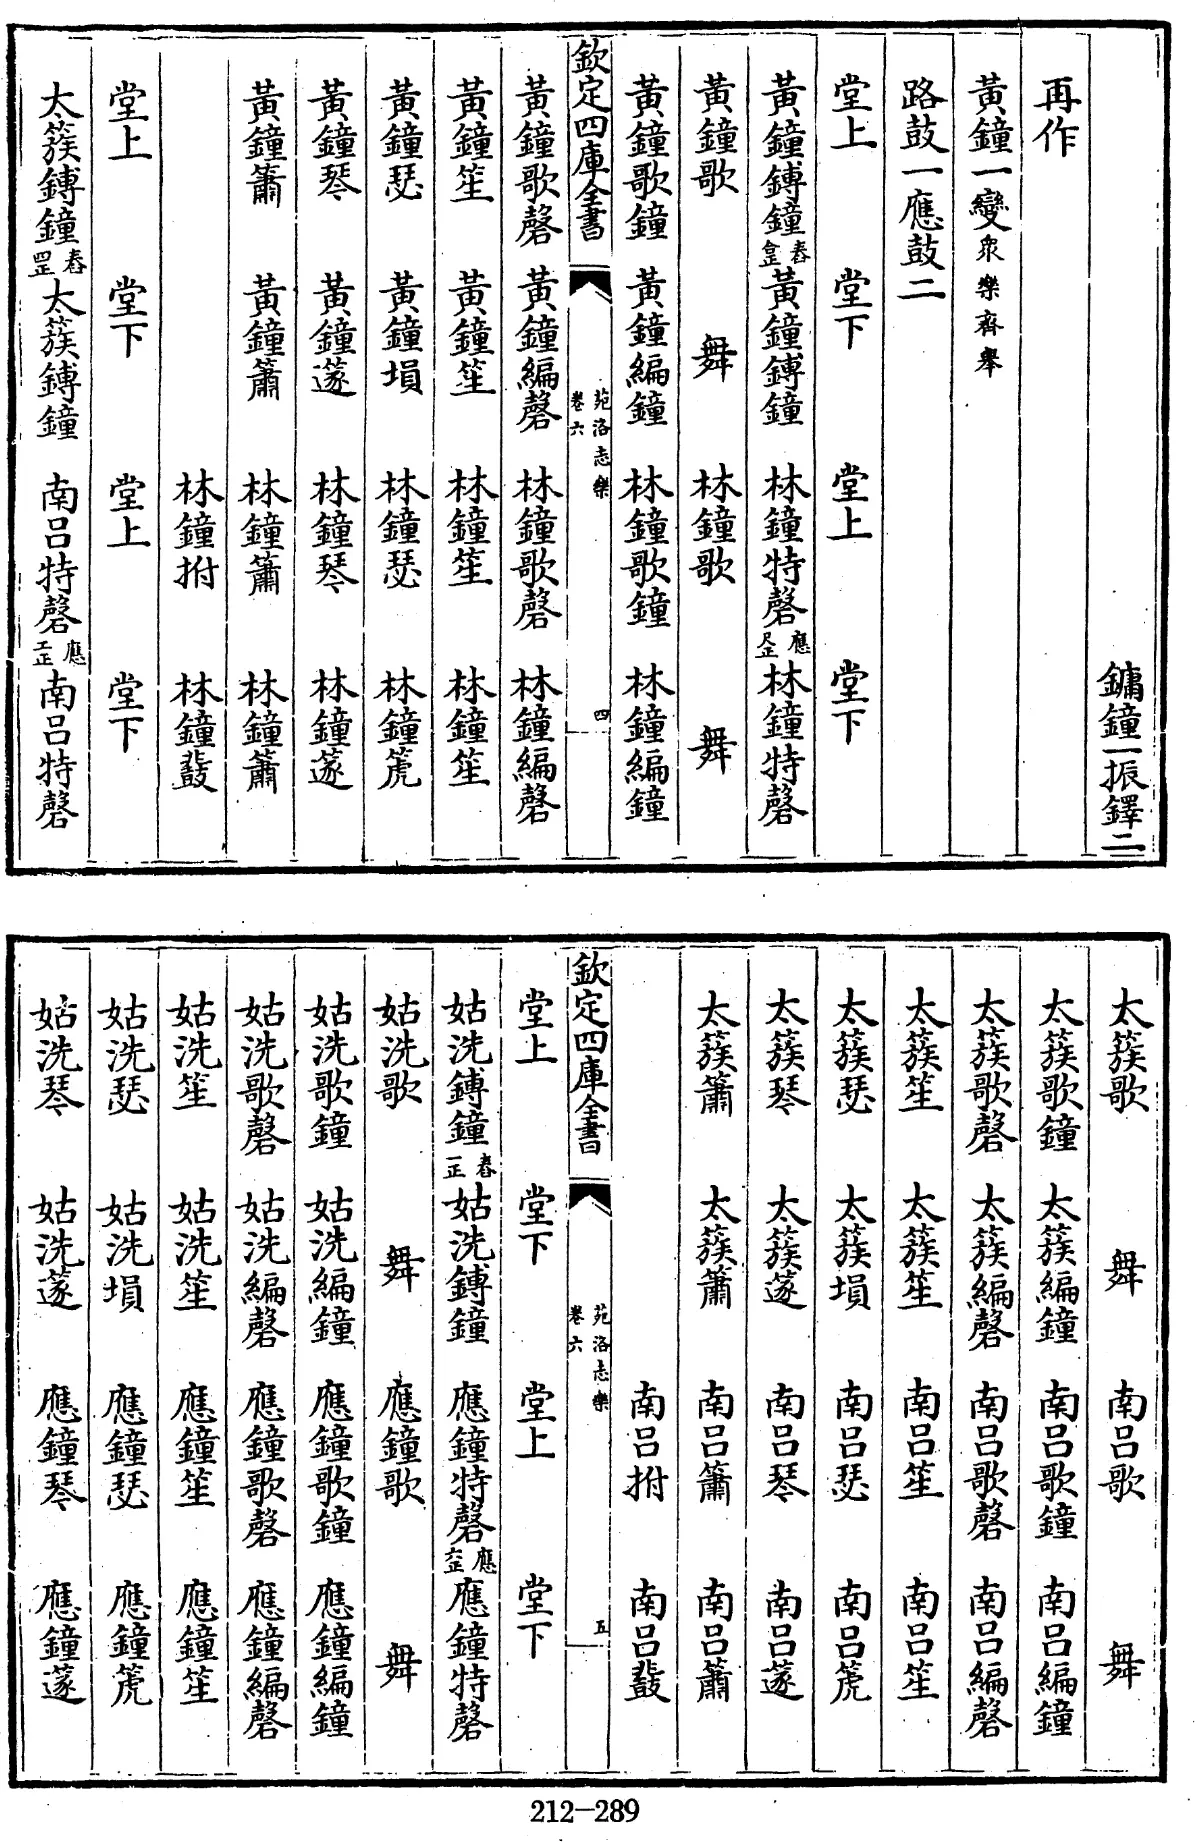 鏞鐘一振鐸二
再作
黃鐘一變衆樂齊舉
路鼓一應鼓二
堂上 堂下 堂上 堂下
黃鐘鎛鐘舂合正 黃鐘鎛鐘 林鐘特磬應尺正 林鐘特磬
黃鐘歌 舞 林鐘歌 舞
黃鐘歌鐘 黃鐘編鐘 林鐘歌鐘 林鐘編鐘
欽定四庫全書 苑洛志樂 卷六 四
黃鐘歌磬 黃鐘編磬 林鐘歌磬 林鐘編磬
黃鐘笙 黃鐘笙 林鐘笙 林鐘笙
黃鐘瑟 黃鐘塤 林鐘瑟 林鐘箎
黃鐘琴 黃鐘篴 林鐘琴 林鐘篴
黃鐘簫 黃鐘簫 林鐘簫 林鐘簫
林鐘拊 林鐘鼗
堂上 堂下 堂上 堂下
太簇鎛鐘舂四正 太簇鎛鐘 南呂特磬應工正 南呂特磬
太簇歌 舞 南呂歌 舞
太簇歌鐘 太簇編鐘 南呂歌鐘 南呂編鐘
太簇歌磬 太簇編磬 南呂歌磬 南呂編磬
太簇笙 太簇笙 南呂笙 南呂笙
太簇瑟 太簇塤 南呂瑟 南呂箎
太簇琴 太簇篴 南呂琴 南呂篴
太簇簫 太簇簫 南呂簫 南呂簫
南呂拊 南呂鼗
欽定四庫全書 苑洛志樂 卷六 五
堂上 堂下 堂上 堂下
姑洗鎛鐘舂一正 姑洗鎛鐘 應鐘特磬應 應鐘特磬
姑洗歌 舞 應鐘歌 舞
姑洗歌鐘 姑洗編鐘 應鐘歌鐘 應鐘編鐘
姑洗歌磬 姑洗編磬 應鐘歌磬 應鐘編磬
姑洗笙 姑洗笙 應鐘笙 應鐘笙
姑洗瑟 姑洗塤 應鐘瑟 應鐘箎
姑洗琴 姑洗篴 應鐘琴 應鐘篴
212-289